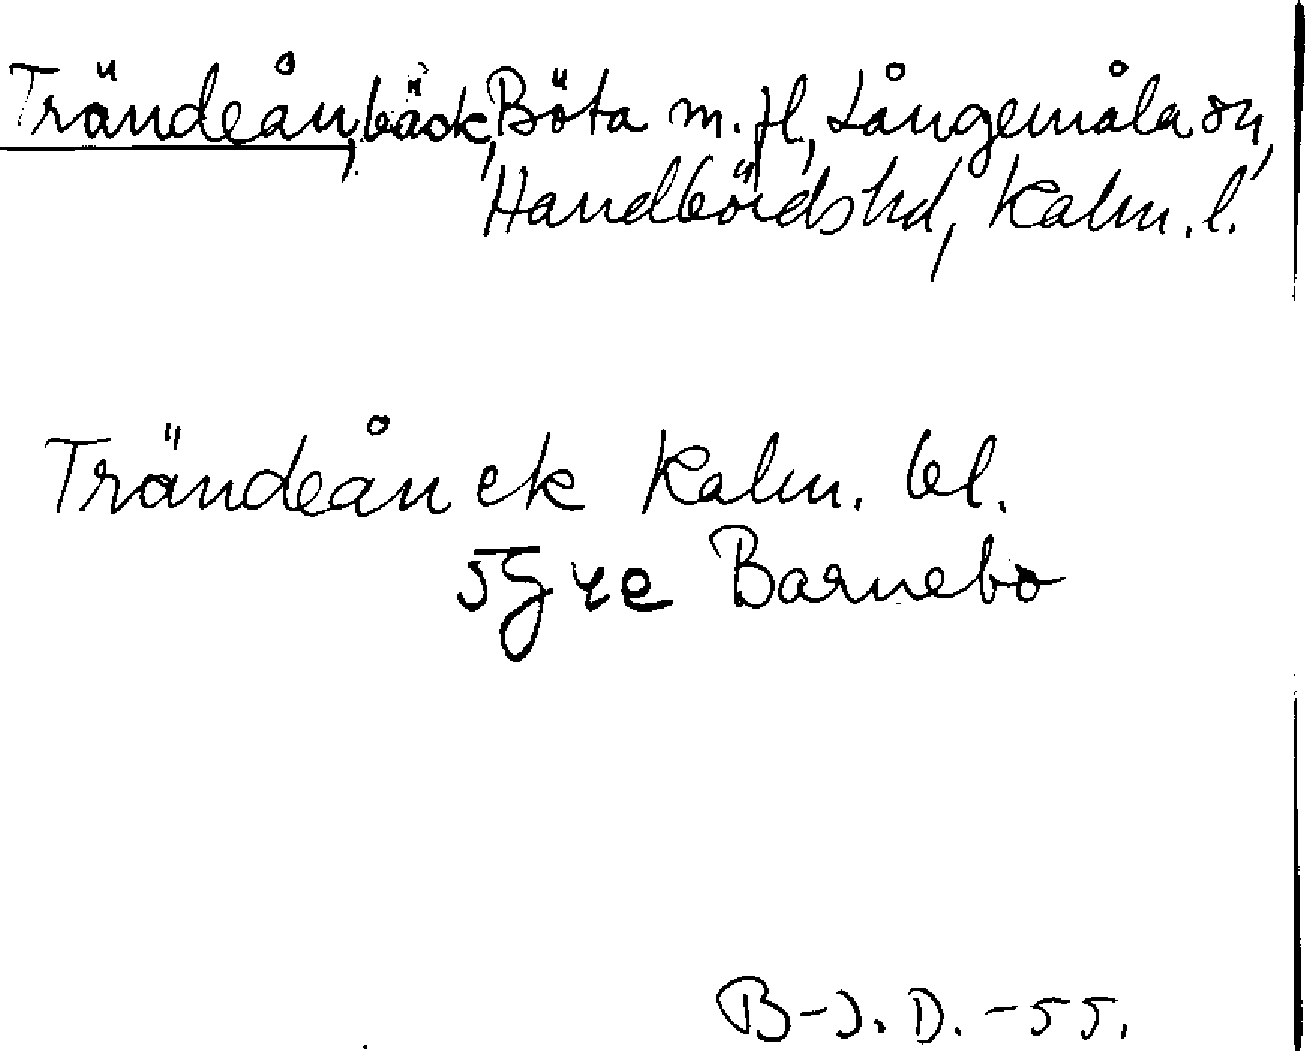 Trändeån, bäck, Böta m.fl, Långemåla sn,
Handbörds hd, Kalm. l.
Trändeån ek Kalm. bl.
5G4e Barnebo
B-J. D. -55.